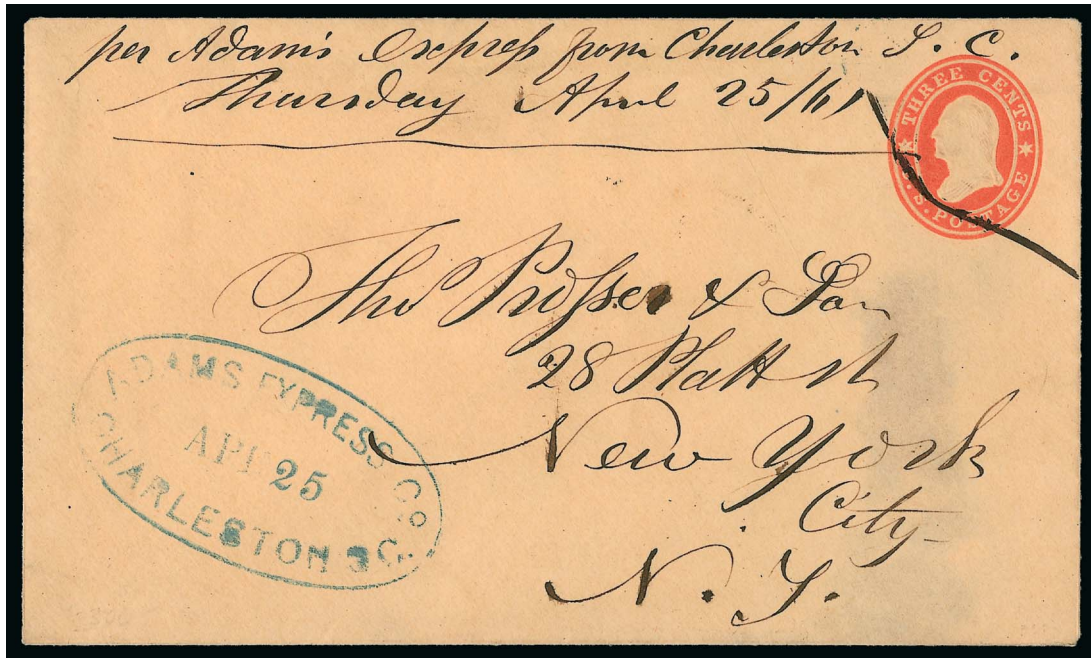 per Adams Express from Charleston S. C.
Thursday April 25/61
THREE CENTS
U.S. POSTAGE
Tho Prosser & Son
28 Platt st
New York
City
N. Y.
ADAMS EXPRESS Co.
APR 25
CHARLESTON S C.